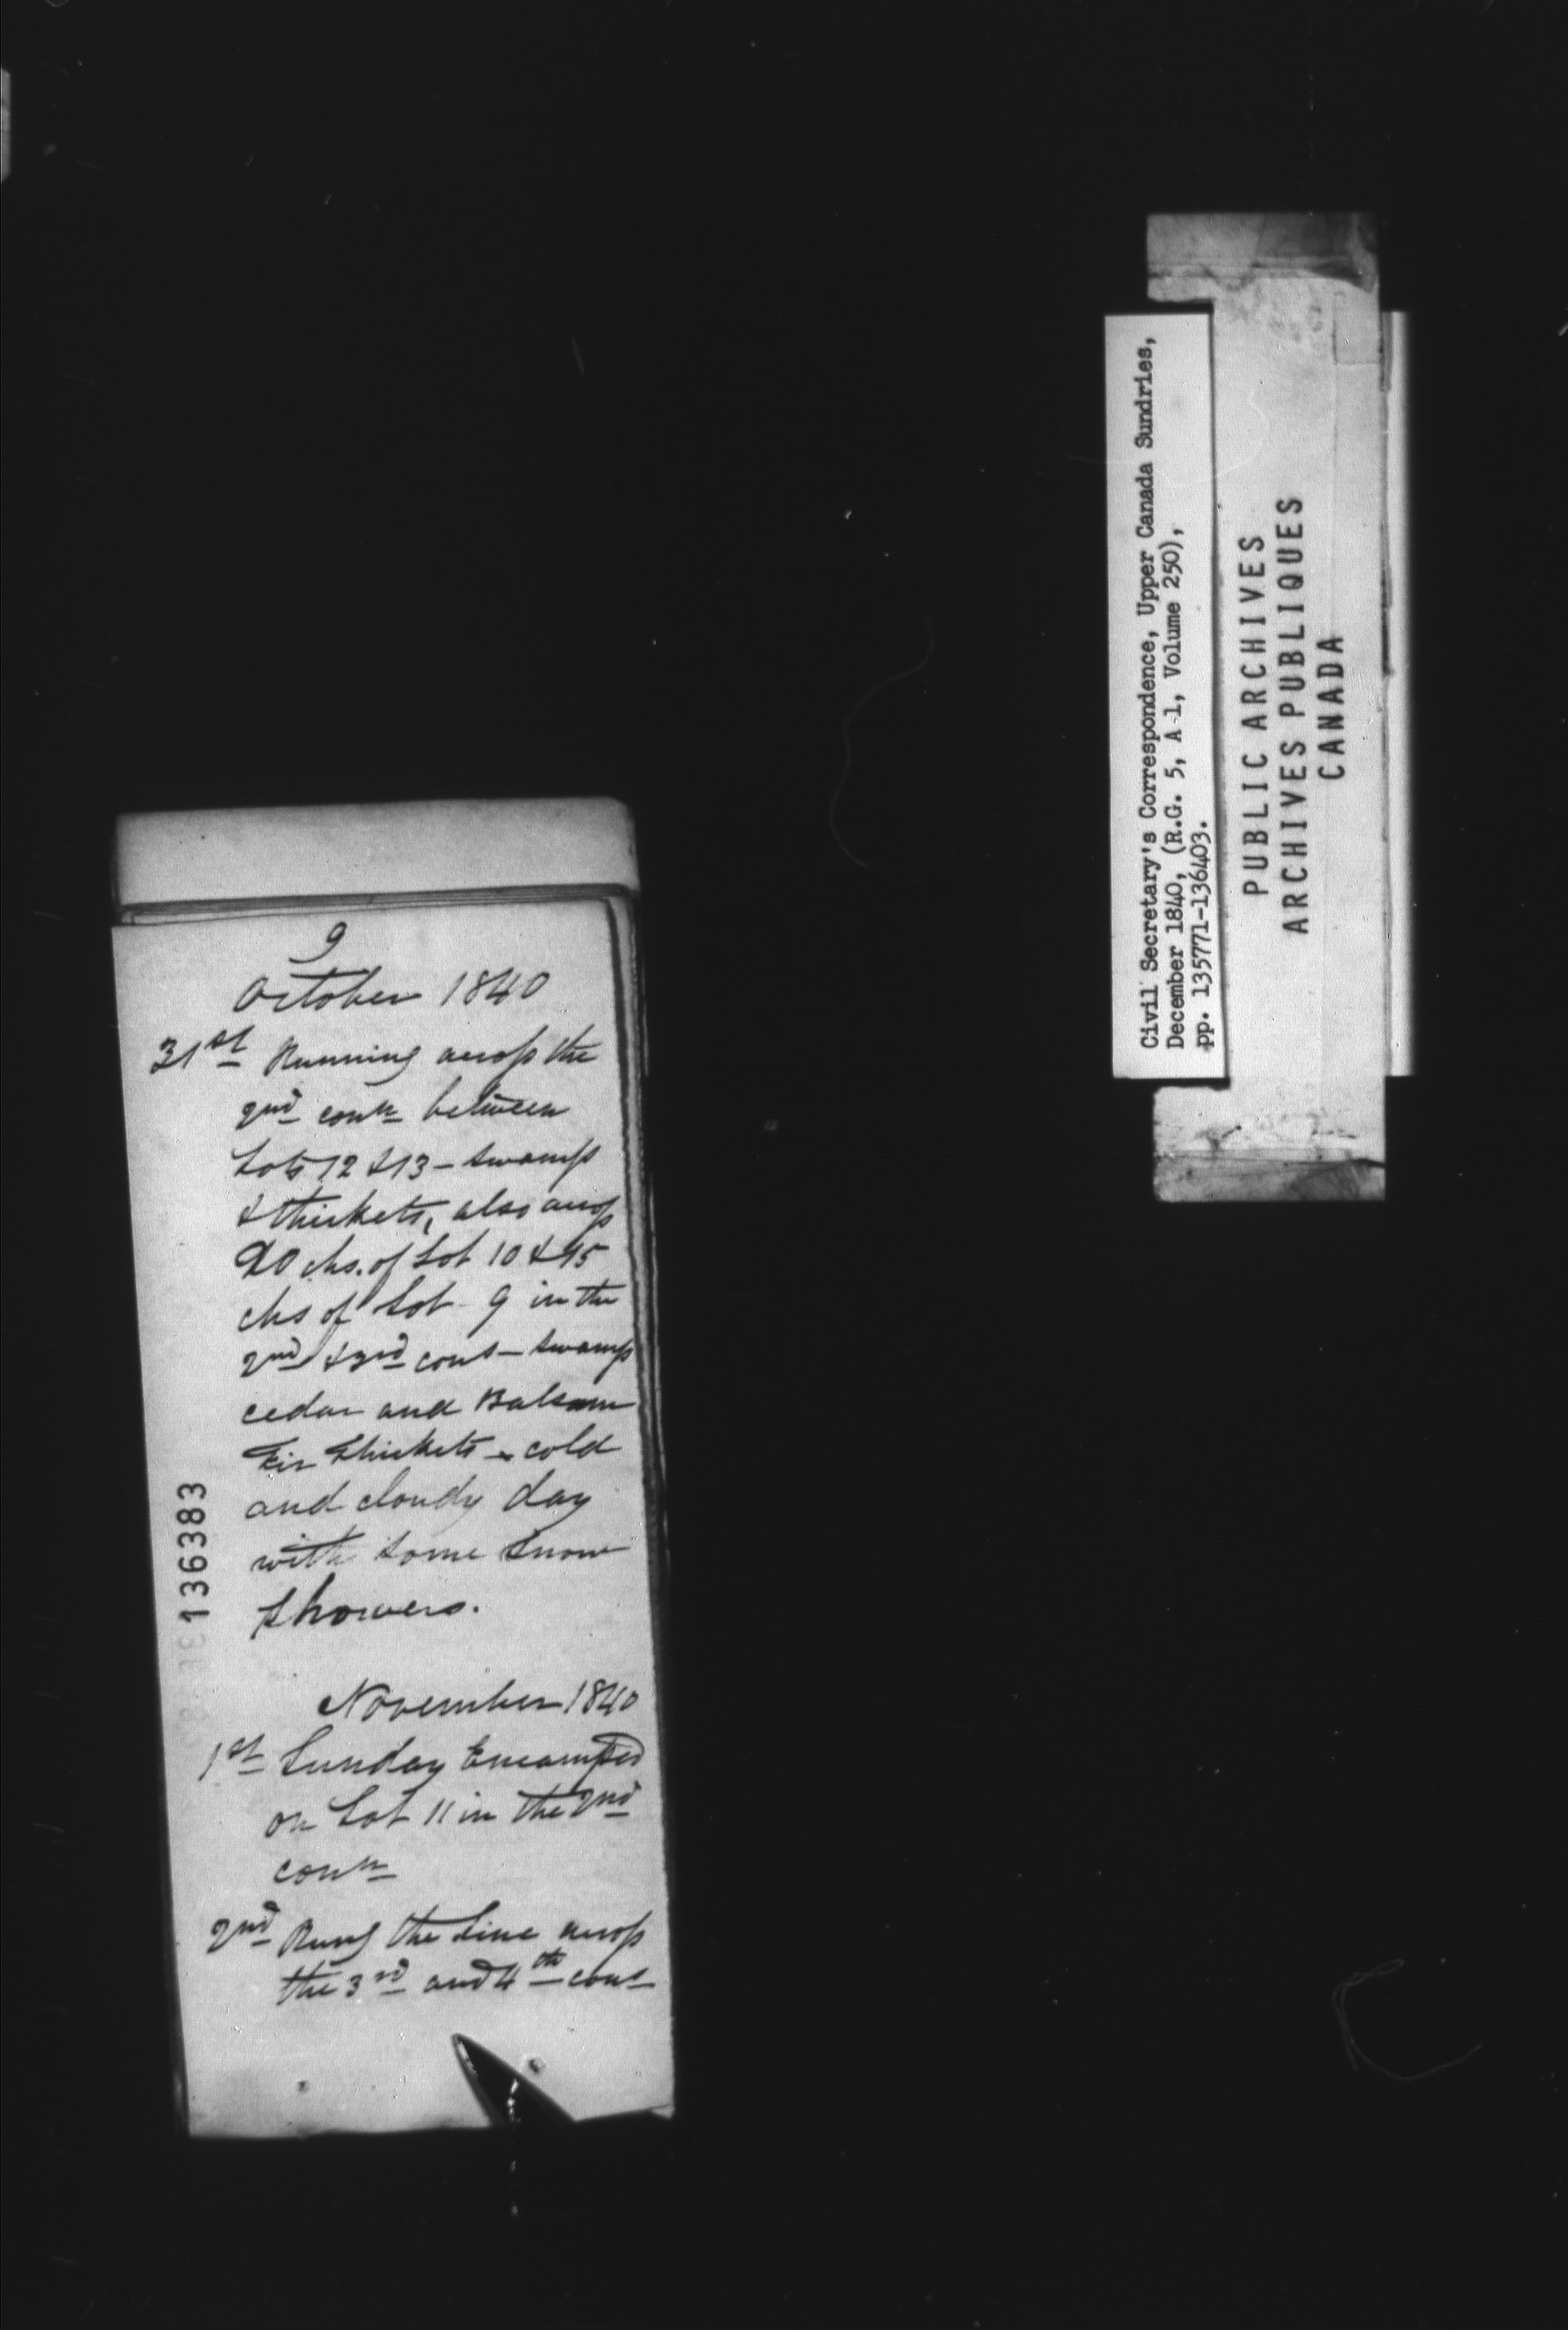 9
October 1840
31st Running across the
2nd conn between
Lots 12 & 13 – swamp
& thickets, also across
20 chs. of Lot 10 & 15
chs of Lot 9 in the
2nd & 3rd cons – swamp
cedar and Balsam
Fir thickets – cold
and cloudy day
with some snow
showers.
November 1840
1st Sunday Encamped
on Lot 11 in the 2nd
conn
2nd Rung the Line across
the 3rd and 4th cons
136383
Civil Secretary's Correspondence, Upper Canada Sundries,
December 1840, (R.G. 5, A 1, Volume 250),
pp. 135771-136403.
PUBLIC ARCHIVES
ARCHIVES PUBLIQUES
CANADA